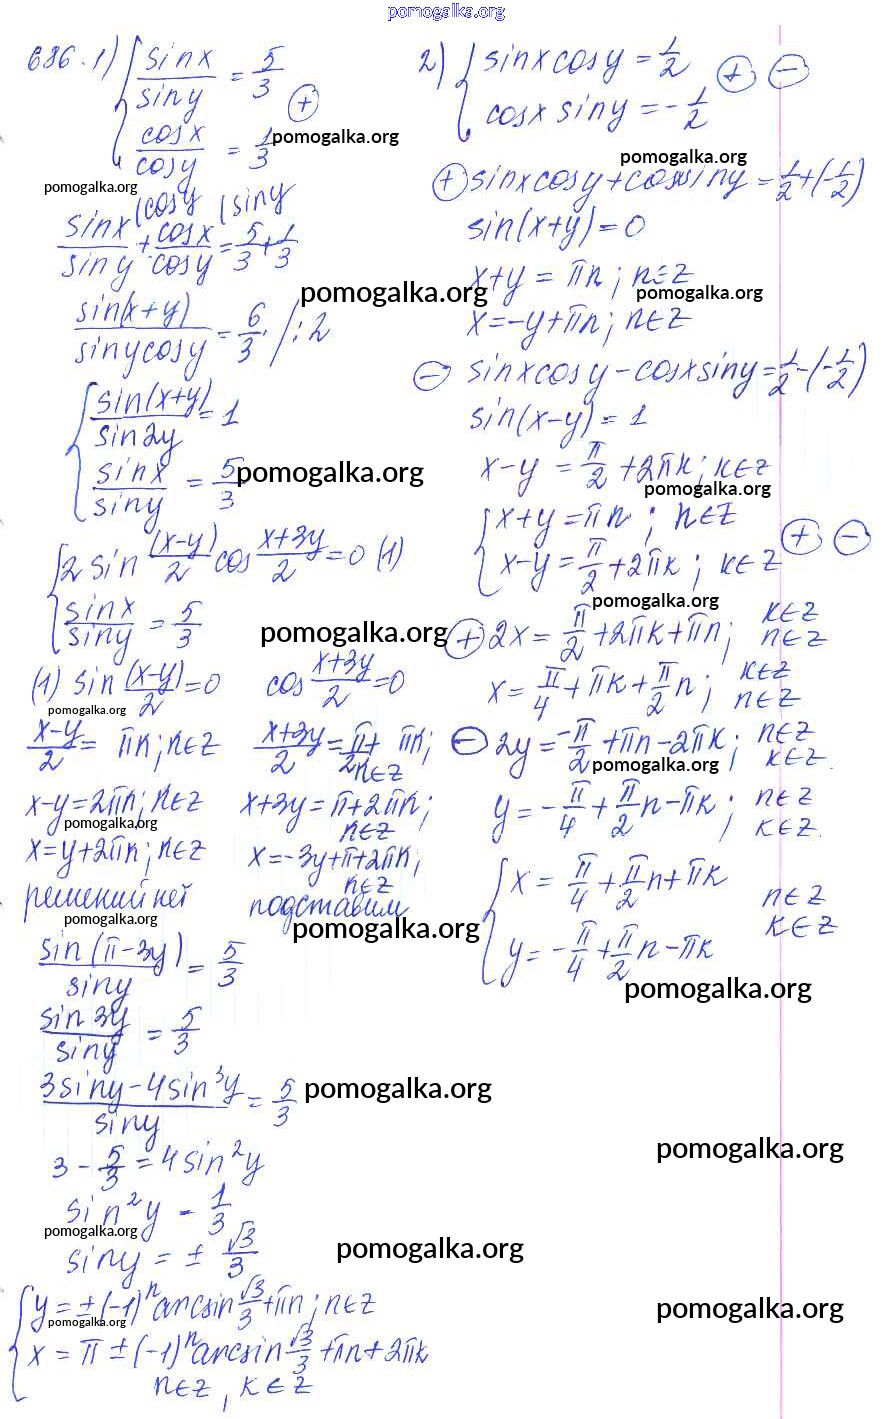 pomogalka.org
686. 1) { sin x / sin y = 5/3
cos x / cos y = 1/3 (+)
pomogalka.org
pomogalka.org
sin x / sin y (cos y + cos x / cos y (sin y = 5/3 + 1/3
pomogalka.org
sin(x+y) / sin y cos y = 6/3 /:2
{ sin(x+y) / sin 2y = 1
sin x / sin y = 5/3
pomogalka.org
{ 2 sin (x-y)/2 cos (x+3y)/2 = 0 (1)
sin x / sin y = 5/3
pomogalka.org
(1) sin (x-y)/2 = 0 cos (x+3y)/2 = 0
pomogalka.org
(x-y)/2 = πn; n∈Z (x+3y)/2 = π/2 + πn; n∈Z
x-y = 2πn; n∈Z x+3y = π+2πn; n∈Z
pomogalka.org
x = y+2πn; n∈Z x = -3y+π+2πn; n∈Z
решений нет подставим
pomogalka.org
pomogalka.org
sin(π-3y) / sin y = 5/3
sin 3y / sin y = 5/3
(3 sin y - 4 sin³y) / sin y = 5/3
pomogalka.org
3 - 5/3 = 4 sin²y
sin²y = 1/3
pomogalka.org
sin y = ± √3/3
pomogalka.org
{ y = ±(-1)ⁿ arcsin √3/3 + πn; n∈Z
pomogalka.org
x = π ± (-1)ⁿ arcsin √3/3 + πn + 2πk
n∈Z, k∈Z
2) { sin x cos y = 1/2
cos x sin y = -1/2 (+) (-)
pomogalka.org
(+) sin x cos y + cos x sin y = 1/2 + (-1/2)
sin(x+y) = 0
x+y = πn; n∈Z
pomogalka.org
x = -y+πn; n∈Z
(-) sin x cos y - cos x sin y = 1/2 - (-1/2)
sin(x-y) = 1
x-y = π/2 + 2πk; k∈Z
pomogalka.org
{ x+y = πn; n∈Z
x-y = π/2 + 2πk; k∈Z (+) (-)
pomogalka.org
(+) 2x = π/2 + 2πk + πn; k∈Z n∈Z
x = π/4 + πk + π/2 n; k∈Z n∈Z
(-) 2y = -π/2 + πn - 2πk; n∈Z k∈Z
pomogalka.org
y = -π/4 + π/2 n - πk; n∈Z k∈Z
{ x = π/4 + π/2 n + πk
y = -π/4 + π/2 n - πk n∈Z k∈Z
pomogalka.org
pomogalka.org
pomogalka.org